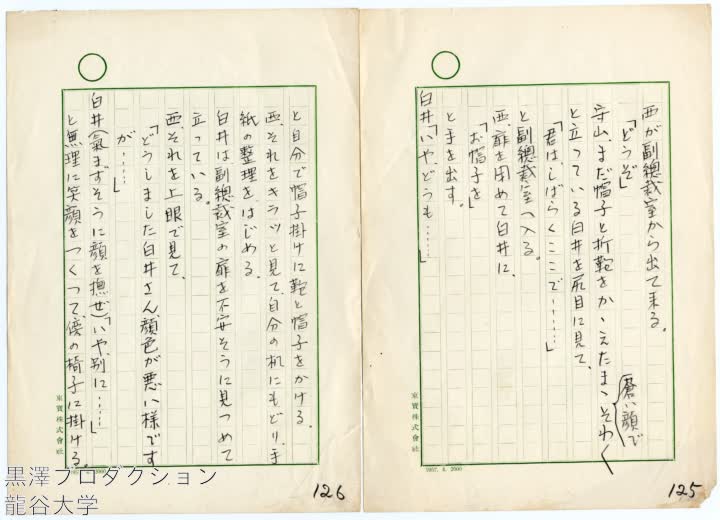 西が副總裁室から出て来る。
「どうぞ」
守山、まだ帽子と折鞄をかゝえたまゝそわ〱
蒼い顔で
と立っている白井を尻目に見て、
「君は、しばらくここで……」
と副總裁室へ入る。
西、扉を閉めて白井に、
「お帽子を」
と手を出す。
白井「いや、どうも……」
東寶株式會社
1957. 8. 2000
125
と自分で帽子掛けに鞄と帽子をかける。
西、それをキラッと見て、自分の机にもどり、手
紙の整理をはじめる。
白井は副總裁室の扉を不安そうに見つめて
立っている。
西、それを上眼で見て、
「どうしました白井さん、顔色が悪い様です
が……」
白井(氣まずそうに顔を撫ぜ)「いや、別に……」
と無理に笑顔をつくって、傍の椅子に掛ける。
東寶株式會社
126
黒澤プロダクション
龍谷大学